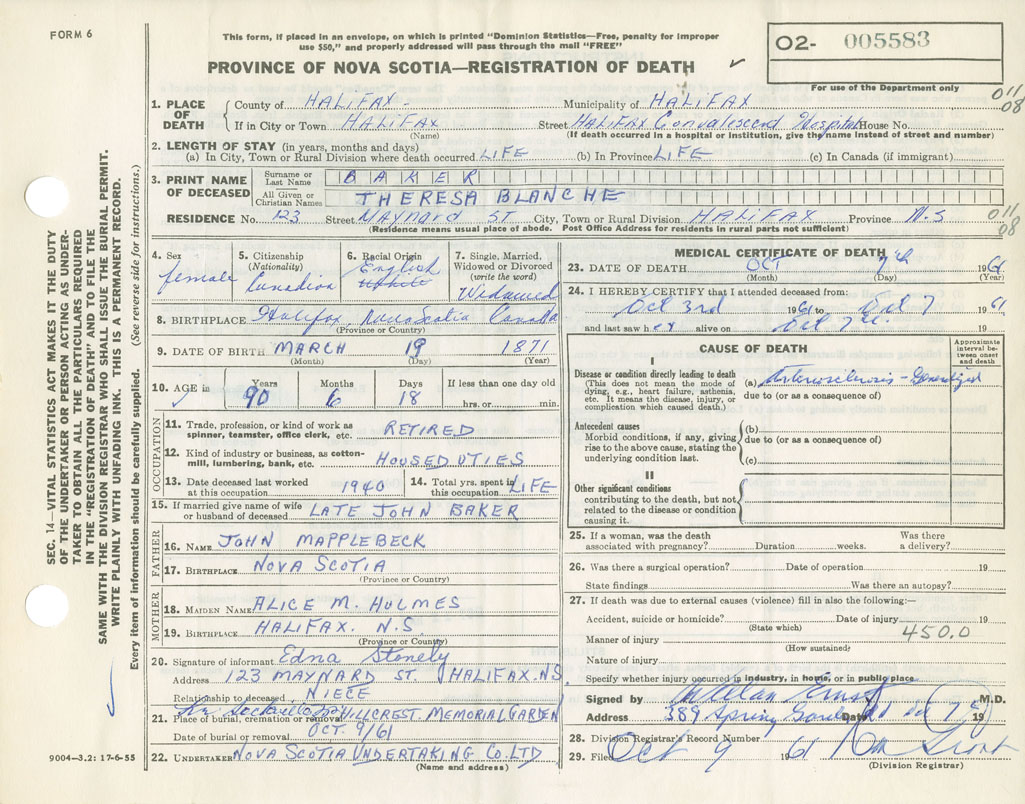 FORM 6
This form, if placed in an envelope, on which is printed "Dominion Statistics—Free, penalty for improper
use $50," and properly addressed will pass through the mail "FREE"
PROVINCE OF NOVA SCOTIA—REGISTRATION OF DEATH ✓
02- 005583
For use of the Department only
011
08
1. PLACE OF DEATH
County of HALIFAX - Municipality of HALIFAX
If in City or Town HALIFAX Street HALIFAX Convalescent Hospital House No.
(Name) (If death occurred in a hospital or institution, give the name instead of street and number)
2. LENGTH OF STAY (in years, months and days)
(a) In City, Town or Rural Division where death occurred LIFE (b) In Province LIFE (c) In Canada (if immigrant)
3. PRINT NAME OF DECEASED
Surname or Last Name BAKER
All Given or Christian Names THERESA BLANCHE
RESIDENCE No. 123 Street Maynard ST City, Town or Rural Division HALIFAX Province N.S
011
08
(Residence means usual place of abode. Post Office Address for residents in rural parts not sufficient)
4. Sex female
5. Citizenship (Nationality) Canadian
6. Racial Origin English White
7. Single, Married, Widowed or Divorced (write the word) Widowed
8. BIRTHPLACE Halifax, Nova Scotia Canada
(Province or Country)
9. DATE OF BIRTH MARCH 19 1871
(Month) (Day) (Year)
10. AGE in Years 90 Months 6 Days 18 If less than one day old hrs. or min.
OCCUPATION
11. Trade, profession, or kind of work as spinner, teamster, office clerk, etc. RETIRED
12. Kind of industry or business, as cotton-mill, lumbering, bank, etc. HOUSEDUTIES
13. Date deceased last worked at this occupation 1940 14. Total yrs. spent in this occupation LIFE
15. If married give name of wife or husband of deceased LATE JOHN BAKER
FATHER
16. NAME JOHN MAPPLEBECK
17. BIRTHPLACE NOVA SCOTIA
(Province or Country)
MOTHER
18. MAIDEN NAME ALICE M. HOLMES
19. BIRTHPLACE HALIFAX. N.S.
(Province or Country)
20. Signature of informant Edna Stonely
Address 123 MAYNARD ST. HALIFAX.NS
Relationship to deceased NIECE
21. Place of burial, cremation or removal HILLCREST MEMORIAL GARDEN
Date of burial or removal OCT. 9/61
22. UNDERTAKER NOVA SCOTIA UNDERTAKING CO. LTD
(Name and address)
MEDICAL CERTIFICATE OF DEATH
23. DATE OF DEATH OCT 7th 1961
(Month) (Day) (Year)
24. I HEREBY CERTIFY that I attended deceased from:
Oct 3rd 1961 to Oct 7 1961
and last saw her alive on Oct 7th 19
CAUSE OF DEATH
Approximate interval between onset and death
I
Disease or condition directly leading to death
(This does not mean the mode of dying, e.g., heart failure, asthenia, etc. It means the disease, injury, or complication which caused death.)
(a) Arteriosclerosis - Generalized
due to (or as a consequence of)
Antecedent causes
Morbid conditions, if any, giving rise to the above cause, stating the underlying condition last.
(b)
due to (or as a consequence of)
(c)
II
Other significant conditions
contributing to the death, but not related to the disease or condition causing it.
25. If a woman, was the death associated with pregnancy? Duration weeks. Was there a delivery?
26. Was there a surgical operation? Date of operation 19
State findings Was there an autopsy?
27. If death was due to external causes (violence) fill in also the following:—
Accident, suicide or homicide? Date of injury 19
(State which) 450.0
Manner of injury
(How sustained)
Nature of injury
Specify whether injury occurred in industry, in home, or in public place
Signed by Allan Ernst M.D.
Address 389 Spring Garden Rd Date Oct 7 19
28. Division Registrar's Record Number
29. Filed Oct 9 1961
(Division Registrar)
SEC. 14—VITAL STATISTICS ACT MAKES IT THE DUTY
OF THE UNDERTAKER OR PERSON ACTING AS UNDER-
TAKER TO OBTAIN ALL THE PARTICULARS REQUIRED
IN THE "REGISTRATION OF DEATH" AND TO FILE THE
SAME WITH THE DIVISION REGISTRAR WHO SHALL ISSUE THE BURIAL PERMIT.
WRITE PLAINLY WITH UNFADING INK. THIS IS A PERMANENT RECORD.
Every item of information should be carefully supplied. (See reverse side for instructions.)
9004—3,2: 17-6-55